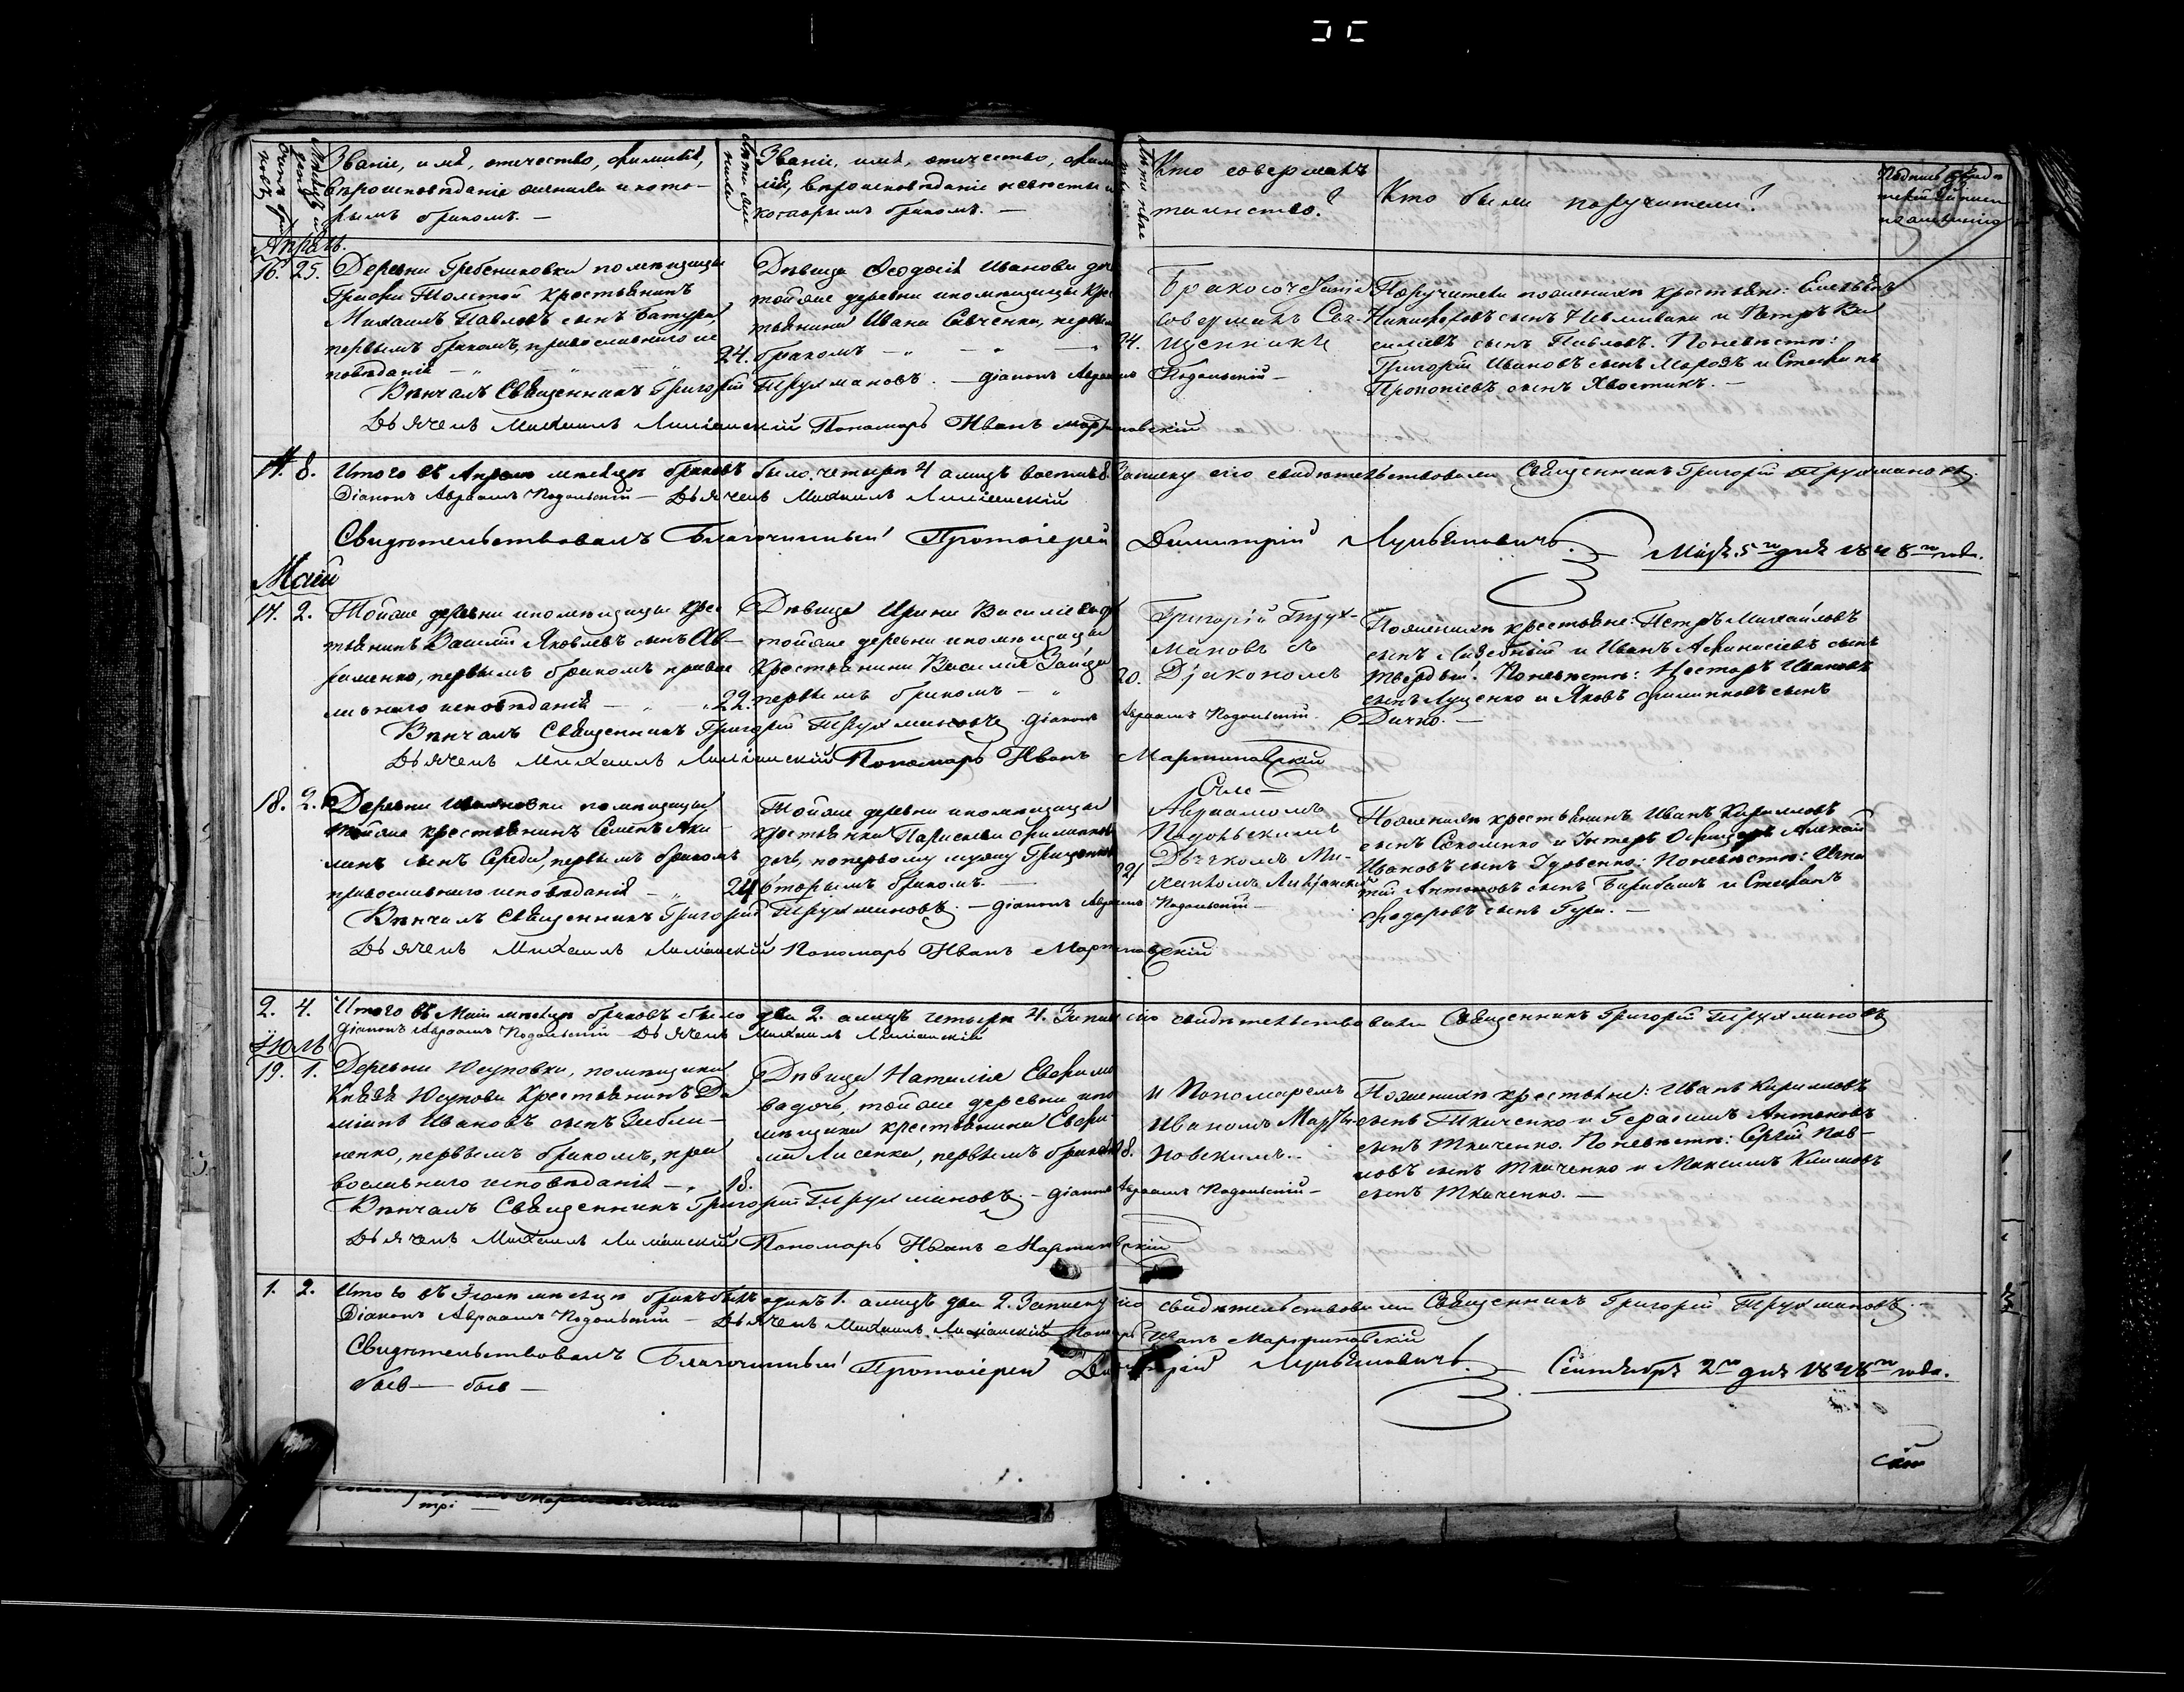 Званіе, имя, отечество, фамилія,
вѣроисповѣданіе жениха и кото-
рымъ бракомъ. —
Званіе, имя, отечество, фами
лія, вѣроисповѣданіе невѣсты и
которымъ бракомъ. —
Кто совершалъ
таинство?
Кто были поручители?
Апрѣль.
16. 25. Деревни Гребениковки помѣщицы
Графини Толстой крестьянинъ
Михаилъ Павловъ сынъ Батура,
первымъ бракомъ, православнаго ис
повѣданія — 24.
Дѣвица Ѳеодосія Иванова доч
тойже деревни и помѣщицы крес
тьянина Ивана Савченка, первым
бракомъ — 24.
Бракосочетаніе
совершалъ Свя-
щенникъ
Поручители по женихѣ крестьяне: Емельянъ
Никифоровъ сынъ и Петръ Ва
силіевъ сынъ Павловъ. По невѣстѣ:
Григорій Ивановъ сынъ Морозъ и Стефанъ
Прокопіевъ сынъ Хвостикъ. —
Вѣнчалъ Священникъ Григорій Трухмановъ. — Діаконъ Авраамъ Подольскій —
Дьячекъ Михаилъ Лиміанскій Пономарь Иванъ Мартиновскій
4. 8. Итого въ Апрѣлѣ мѣсяцѣ браковъ было четыри 4 а лицъ восемь 8. Записку сію свидѣтельствовали Священникъ Григорій Трухмановъ.
Діаконъ Авраамъ Подольскій — Дьячекъ Михаилъ Лиміанскій
Свидѣтельствовалъ Благочинный Протоіерей Димитрій Лукьяновичъ. — Маія 5го дня 1848го года.
Маій
17. 2. Тойже деревни и помѣщицы крес
тьянинъ Василій Яковлевъ сынъ Ав-
раменко, первымъ бракомъ право
славнаго исповѣданія — 22.
Дѣвица Ирина Василіева до
тойже деревни и помѣщицы
крестьянина Василія Зайца
первымъ бракомъ — 20.
Григорій Трух-
мановъ съ
Діакономъ
По женихѣ крестьяне: Петръ Михайловъ
сынъ Лизебный и Иванъ Афанасіевъ сынъ
Твердый. По невѣстѣ: Несторъ Ивановъ
сынъ Луценко и Яковъ Филиповъ сынъ
Дичко. —
Вѣнчалъ Священникъ Григорій Трухмановъ Діаконъ Авраамъ Подольскій.
Дьячекъ Михаилъ Лиміанскій Пономарь Иванъ Мартиновскій
18. 2. Деревни Ивановки помѣщицы
тойже крестьянинъ Семенъ Аки
линъ сынъ Середа, первымъ бракомъ
православнаго исповѣданія — 24
Тойже деревни и помѣщицы
крестьянка Параскева Филипова
дочь, по первому мужу Грищенков
вторымъ бракомъ. — 22
Авраамомъ
Подольскимъ
Дьячкомъ Ми-
хаиломъ Лиміанскимъ
По женихѣ крестьянинъ Иванъ Кириловъ
сынъ Соколенко и Унтеръ Офицеръ Алексѣй
Ивановъ сынъ Удовенко: По невѣстѣ: Игна
тій Антоновъ сынъ Барабашъ и Стефанъ
Ѳеодоровъ сынъ Гура. —
Вѣнчалъ Священникъ Григорій Трухмановъ. — Діаконъ Авраамъ Подольскій —
Дьячекъ Михаилъ Лиміанскій Пономарь Иванъ Мартиновскій
2. 4. Итого въ Маіи мѣсяцѣ браковъ было два 2. а лицъ четыри 4. Записку сію свидѣтельствовали Священникъ Григорій Трухмановъ
Діаконъ Авраамъ Подольскій — Дьячекъ Михаилъ Лиміанскій
Іюль
19. 1. Деревни Юсуповки, помѣщика
Князя Юсупова крестьянинъ Да
міанъ Ивановъ сынъ
ненко, первымъ бракомъ, пра
вославнаго исповѣданія — 18.
Дѣвица Наталія Евфимо
ва дочь, тойже деревни и по
мѣщика крестьянина Евфи
ма Лисенка, первымъ бракомъ 18.
и Пономаремъ
Иваномъ Марти-
новскимъ. —
По женихѣ крестьяне: Иванъ Кириловъ
сынъ Ткаченко и Герасимъ Антоновъ
сынъ Ткаченко. По невѣстѣ: Сергѣй Пав-
ловъ сынъ Ткаченко и Максимъ Климовъ
сынъ Ткаченко. —
Вѣнчалъ Священникъ Григорій Трухмановъ. — Діаконъ Авраамъ Подольскій —
Дьячекъ Михаилъ Лиміанскій Пономарь Иванъ Мартиновскій
1. 2. Итого въ Іюлѣ мѣсяцѣ бракъ былъ одинъ 1. а лицъ два 2. Записку сію свидѣтельствовали Священникъ Григорій Трухмановъ. —
Діаконъ Авраамъ Подольскій — Дьячекъ Михаилъ Лиміанскій Пономарь Иванъ Мартиновскій
Свидѣтельствовалъ Благочинный Протоіерей Димитрій Лукьяновичъ. — Сентября 2го дня 1848го года.